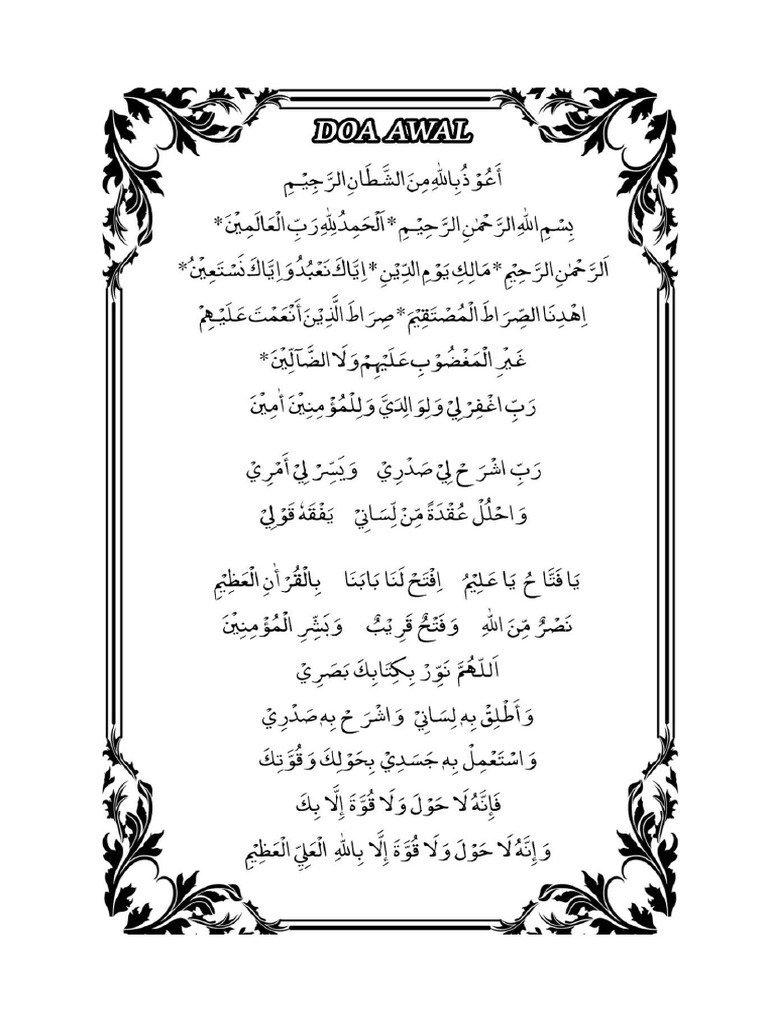 DOA AWAL
أَعُوْذُبِاللهِ مِنَ الشَّطَانِ الرَّجِيْمِ
بِسْمِ اللهِ الرَّحْمٰنِ الرَّحِيْمِ * اَلْحَمِدُلِلهِ رَبِّ الْعَالَمِيْنَ *
اَلرَّحْمٰنِ الرَّحِيْمِ * مَالِكِ يَوْمِ الدِّيْنِ * اِيَّاكَ نَعْبُدُ وَ اِيَّاكَ نَسْتَعِيْنُ *
اِهْدِنَا الصِّرَاطَ الْمُصْتَقِيْمَ * صِرَاطَ الَّذِيْنَ أَنْعَمْتَ عَلَيْهِمْ
غَيْرِ الْمَغْضُوْبِ عَلَيْهِمْ وَلَا الضَّآلِّيْنَ *
رَبِّ اغْفِرْلِيْ وَلِوَالِدَيَّ وَلِلْمُؤْمِنِيْنَ أٰمِيْنَ
رَبِّ اشْرَحْ لِيْ صَدْرِيْ وَيَسِّرْ لِيْ أَمْرِيْ
وَاحْلُلْ عُقْدَةً مِّنْ لِّسَانِيْ يَفْقَهُ قَوْلِيْ
يَا فَتَّاحُ يَا عَلِيْمُ اِفْتَحْ لَنَا بَابَنَا بِالْقُرْأٰنِ الْعَظِيْمِ
نَصْرٌ مِّنَ اللهِ وَفَتْحٌ قَرِيْبٌ وَبَشِّرِ الْمُؤْمِنِيْنَ
اَللّٰهُمَّ نَوِّرْ بِكِتَابِكَ بَصَرِيْ
وَأَطْلِقْ بِهِ لِسَانِيْ وَاشْرَحْ بِهِ صَدْرِيْ
وَاسْتَعْمِلْ بِهِ جَسَدِيْ بِحَوْلِكَ وَقُوَّتِكَ
فَإِنَّهُ لَا حَوْلَ وَلَا قُوَّةَ إِلَّا بِكَ
وَإِنَّهُ لَا حَوْلَ وَلَا قُوَّةَ إِلَّا بِاللهِ الْعَلِيِّ الْعَظِيْمِ